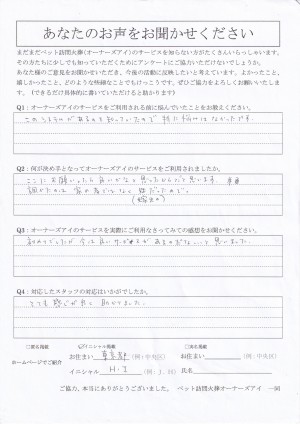 あなたのお声をお聞かせください
まだまだペット訪問火葬(オーナーズアイ)のサービスを知らない方がたくさんいらっしゃいます。
その方たちに少しでも知っていただくためにアンケートにご協力いただけないでしょうか。
あなた様のご意見をお聞かせいただき、今後の活動に反映したいと考えています。よかったこと、
嬉しかったこと、どのような些細なことでもけっこうです。ぜひご協力をよろしくお願いいたしま
す。(できるだけ具体的に書いていただけると助かります)
Q1:オーナーズアイのサービスをご利用される前に悩んでいたことをお教えください。
このようなのがあるのを知っていたので 特に悩みはなかったです.
Q2:何が決め手となってオーナーズアイのサービスをご利用されましたか。
ここにお願いしたら良いかなと思ったからだと思います.
Q3:オーナーズアイのサービスを実際にご利用なさってみての感想をお聞かせください。
初めてでしたが 今は良い
があるのだな、、、と思いました.
Q4:対応したスタッフの対応はいかがでしたか。
とても感じが良く 助かりました.
□実名掲載 ☑イニシャル掲載 □匿名掲載
ホームページでご紹介
お住まい 東京都 (例:中央区) お住まい (例:中央区)
イニシャル H・I (例:J.H) 氏名
ご協力、本当にありがとうございました。 ペット訪問火葬オーナーズアイ 一同